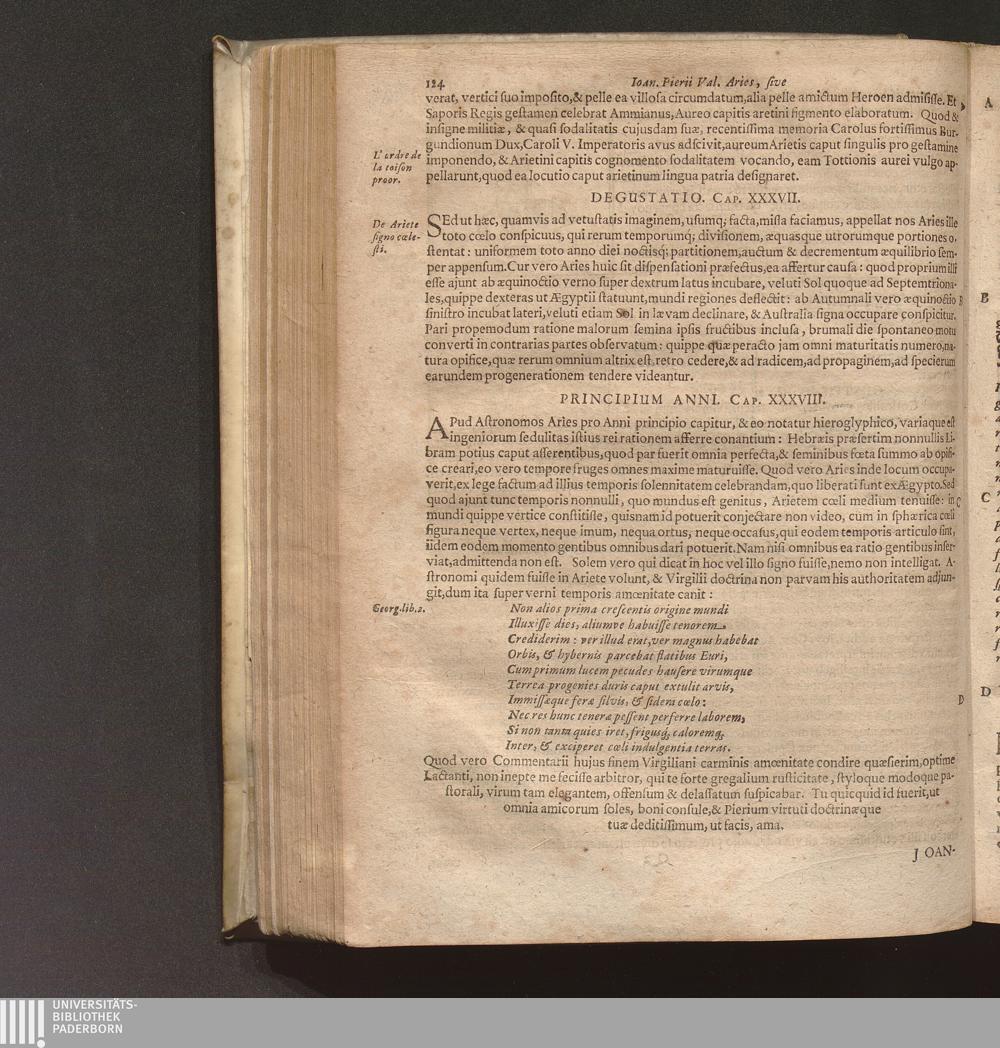 124 Ioan. Pierii Val. Aries, ſive
verat, vertici ſuo impoſito,& pelle ea villoſa circumdatum,alia pelle amictum Heroen admiſiſſe. Et
Saporis Regis geſtamen celebrat Ammianus, Aureo capitis aretini figmento elaboratum. Quod &
inſigne militiæ, & quaſi ſodalitatis cujusdam ſuæ, recentiſſima memoria Carolus fortiſſimus Bur-
gundionum Dux,Caroli V. Imperatoris avus adſcivit,aureum Arietis caput ſingulis pro geſtamine
L'ordre de
la toiſon
proor.
imponendo, & Arietini capitis cognomento ſodalitatem vocando, eam Tottionis aurei vulgo ap-
pellarunt,quod ea locutio caput arietinum lingua patria deſignaret.
DEGUSTATIO. CAP. XXXVII.
De Ariete
ſigno cœle-
ſti.
SEd ut hæc, quamvis ad vetuſtatis imaginem, uſumq; facta,miſſa faciamus, appellat nos Aries ille
toto cœlo conſpicuus, qui rerum temporumq; diviſionem, æquasque utrorumque portiones o-
ſtentat : uniformem toto anno diei noctisq; partitionem,auctum & decrementum æquilibrio ſem-
per appenſum.Cur vero Aries huic ſit diſpenſationi præfectus,ea affertur cauſa : quod proprium illi
eſſe ajunt ab æquinoctio verno ſuper dextrum latus incubare, veluti Sol quoque ad Septemtriona-
les,quippe dexteras ut Ægyptii ſtatuunt,mundi regiones deflectit: ab Autumnali vero æquinoctio B
ſiniſtro incubat lateri,veluti etiam Sol in lævam declinare, & Auſtralia ſigna occupare conſpicitur.
Pari propemodum ratione malorum ſemina ipſis fructibus incluſa, brumali die ſpontaneo motu
converti in contrarias partes obſervatum : quippe quæ peracto jam omni maturitatis numero,na-
tura opifice,quæ rerum omnium altrix eſt,retro cedere,& ad radicem,ad propaginem,ad ſpecierum
earundem progenerationem tendere videantur.
PRINCIPIUM ANNI. CAP. XXXVIII.
APud Aſtronomos Aries pro Anni principio capitur, & eo notatur hieroglyphico, variaque eſt
ingeniorum ſedulitas iſtius rei rationem afferre conantium : Hebræis præſertim nonnullis Li-
bram potius caput aſſerentibus,quod par fuerit omnia perfecta,& ſeminibus fœta ſummo ab opifi-
ce creari,eo vero tempore fruges omnes maxime maturuiſſe. Quod vero Aries inde locum occupa-
verit,ex lege factum ad illius temporis ſolennitatem celebrandam,quo liberati ſunt ex Ægypto.Sed
quod ajunt tunc temporis nonnulli, quo mundus eſt genitus, Arietem cœli medium tenuiſſe: in C
mundi quippe vertice conſtitiſſe, quisnam id potuerit conjectare non video, cum in ſphærica cœli
figura neque vertex, neque imum, nequa ortus, neque occaſus,qui eodem temporis articulo ſint,
iidem eodem momento gentibus omnibus dari potuerit.Nam niſi omnibus ea ratio gentibus inſer-
viat,admittenda non eſt. Solem vero qui dicat in hoc vel illo ſigno fuiſſe,nemo non intelligat. A-
ſtronomi quidem fuiſſe in Ariete volunt, & Virgilii doctrina non parvam his authoritatem adjun-
git,dum ita ſuper verni temporis amœnitate canit :
Georg.lib.2. Non alios prima creſcentis origine mundi
Illuxiſſe dies, aliumve habuiſſe tenorem
Crediderim : ver illud erat,ver magnus habebat
Orbis, & hybernis parcebat flatibus Euri,
Cum primum lucem pecudes hauſere virumque
Terrea progenies duris caput extulit arvis,
Immiſſæque feræ ſilvis, & ſidera cœlo : D
Nec res hunc teneræ poſſent perferre laborem,
Si non tanta quies iret, frigusq;, caloremq;,
Inter, & exciperet cœli indulgentia terras.
Quod vero Commentarii hujus finem Virgiliani carminis amœnitate condire quæſierim,optime
Lactanti, non inepte me feciſſe arbitror, qui te forte gregalium ruſticitate, ſtyloque modoque pa-
ſtorali, virum tam elegantem, offenſum & delaſſatum ſuſpicabar. Tu quicquid id fuerit,ut
omnia amicorum ſoles, boni conſule,& Pierium virtuti doctrinæque
tuæ deditiſſimum, ut facis, ama.
JOAN-
A
B
C
D
UNIVERSITÄTS-
BIBLIOTHEK
PADERBORN